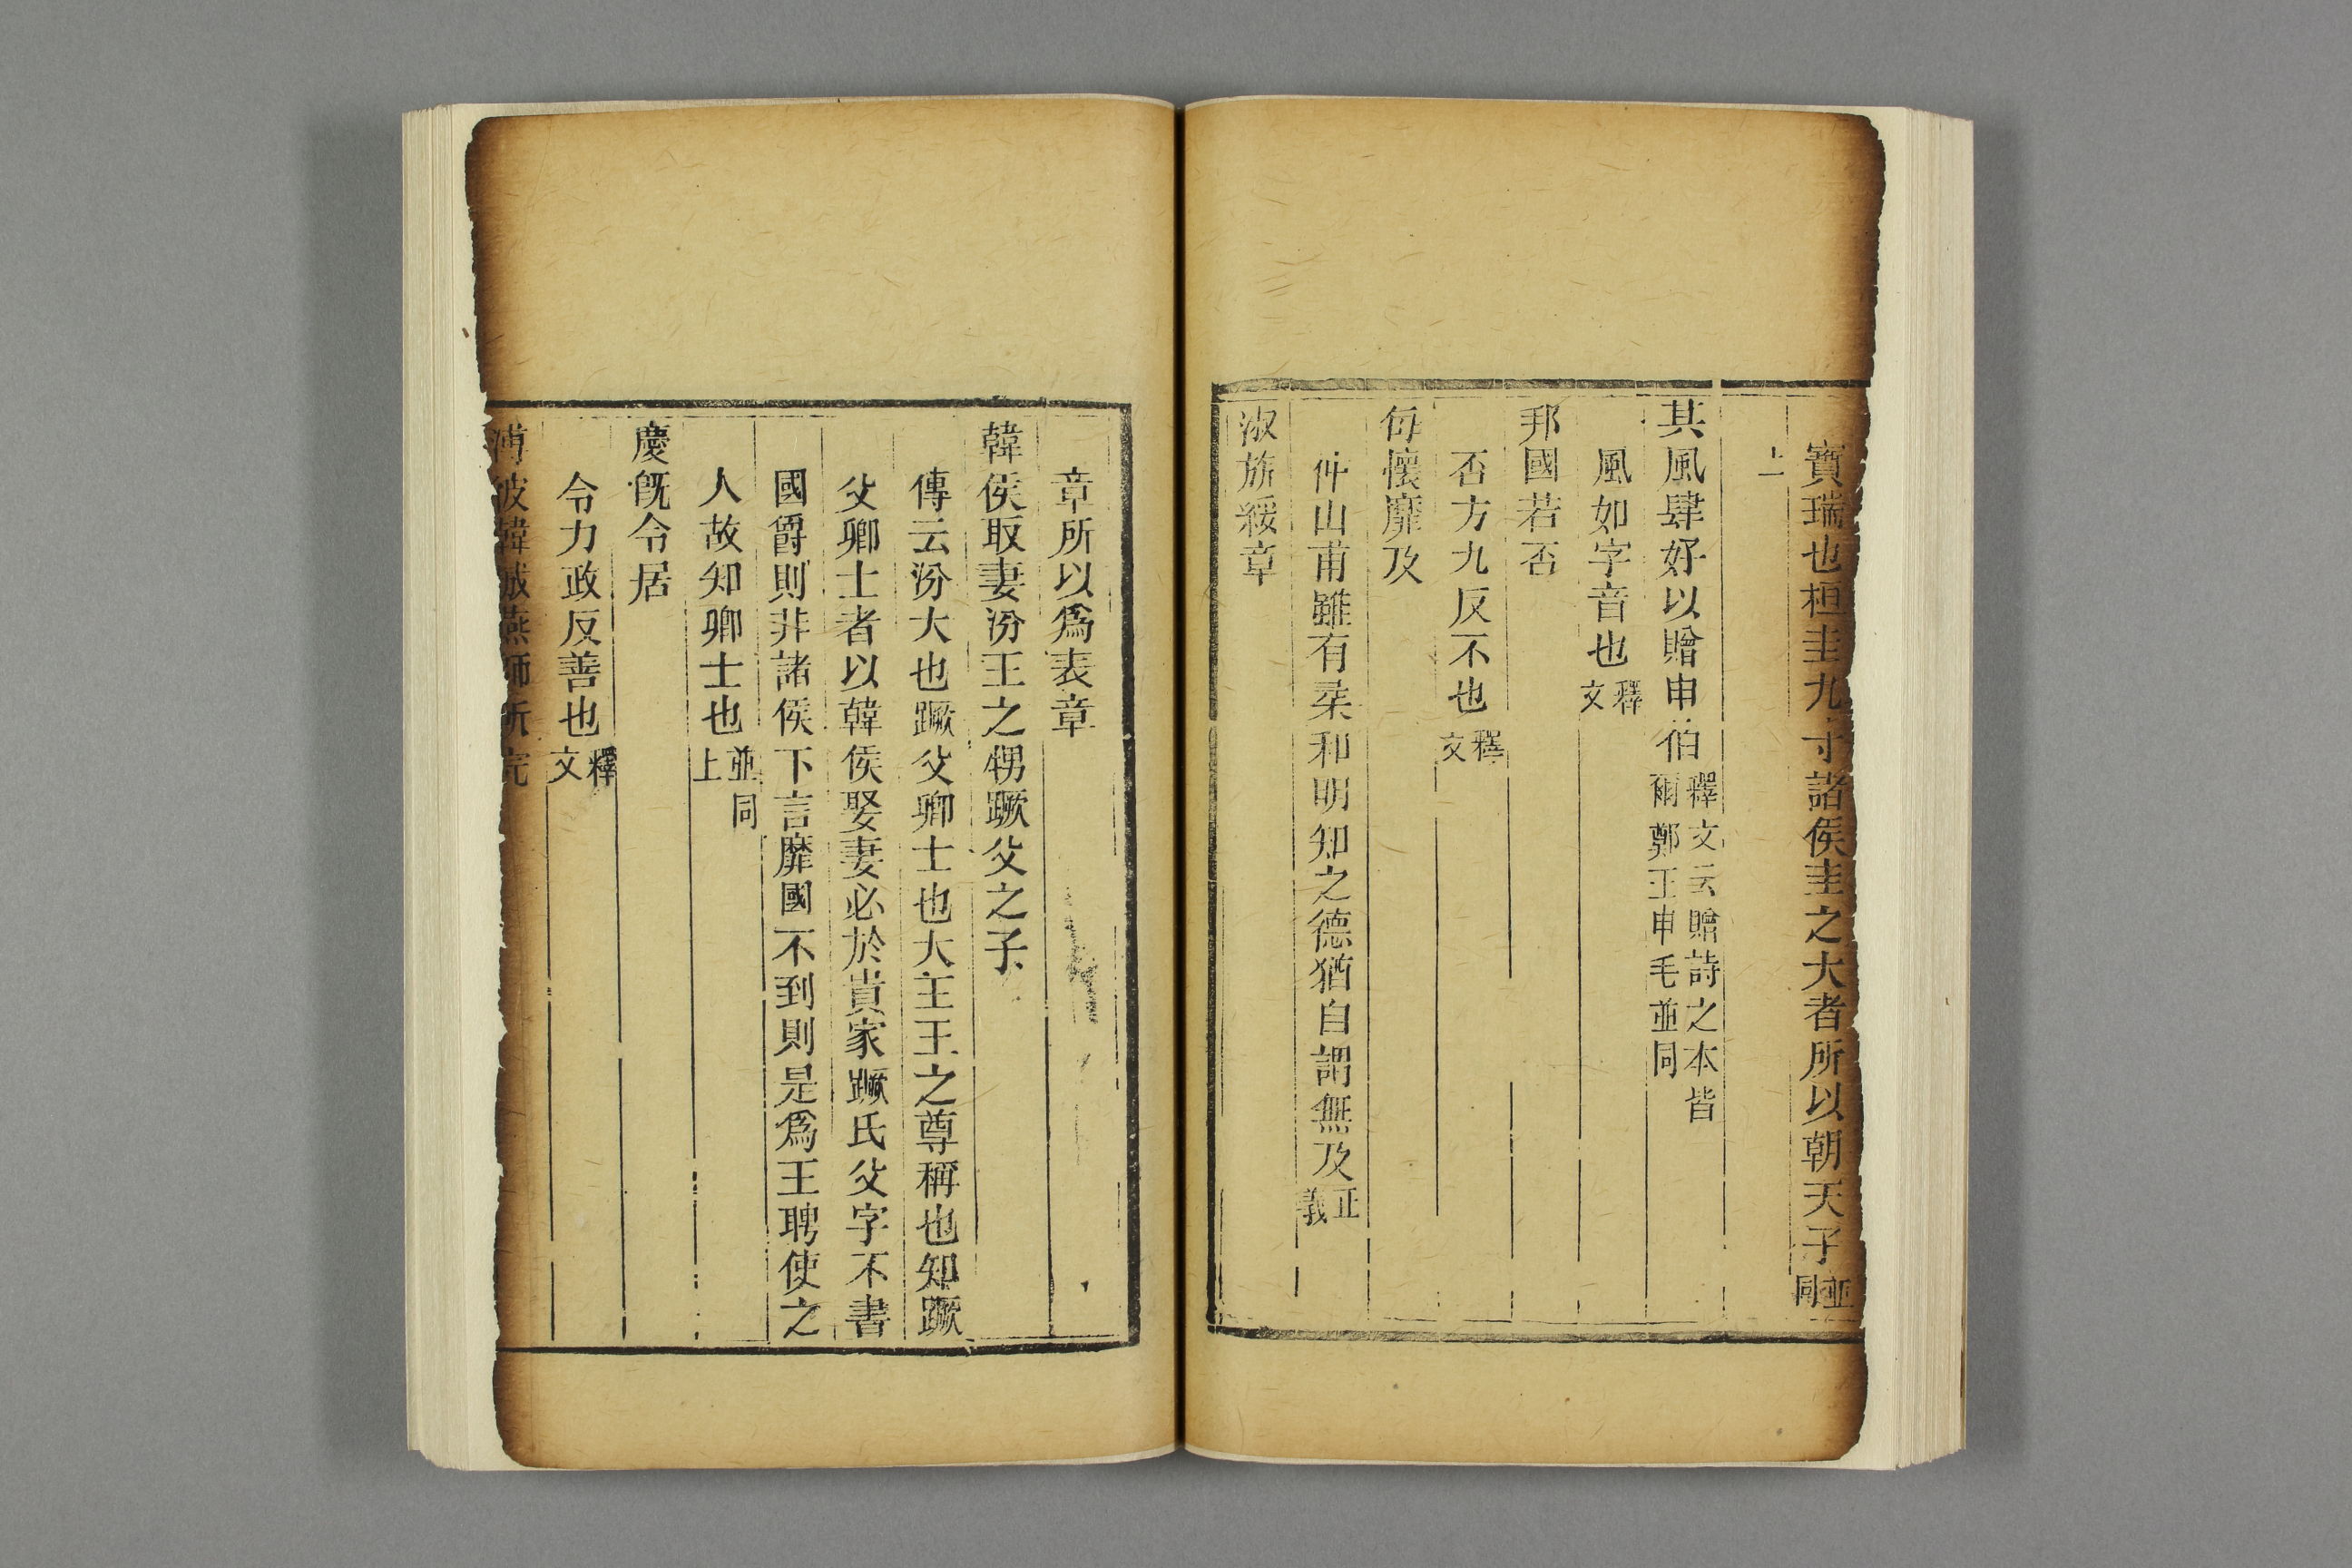 寶瑞也桓圭九寸諸侯圭之大者所以朝天子並同
上
其風肆好以贈申伯釋文云贈詩之本皆爾鄭王申毛並同
風如字音也釋文
邦國若否
否方九反不也釋文
每懷靡及
仲山甫雖有柔和明知之德猶自謂無及正義
淑旂綏章
章所以爲表章
韓侯取妻汾王之甥蹶父之子
傳云汾大也蹶父卿士也大王王之尊稱也知蹶
父卿士者以韓侯娶妻必於貴家蹶氏父字不書
國爵則非諸侯下言靡國不到則是爲王聘使之
人故知卿士也並同上
慶旣令居
令力政反善也釋文
溥彼韓城燕師所完